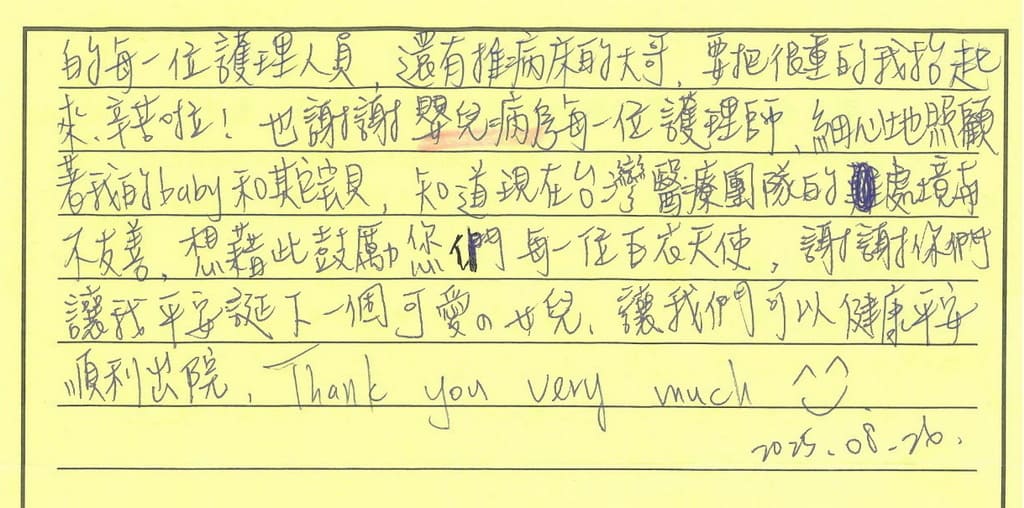 的每一位護理人員,還有推病床的大哥,要把很重的我抬起
來、辛苦啦!也謝謝嬰兒病房每一位護理師,細心地照顧
著我的baby和其它寶貝,知道現在台灣醫療團隊的處境
不友善,想藉此鼓勵您們每一位白衣天使,謝謝你們
讓我平安誕下一個可愛の女兒、讓我們可以健康平安
順利出院,Thank you very much ^^
2025.08.26.